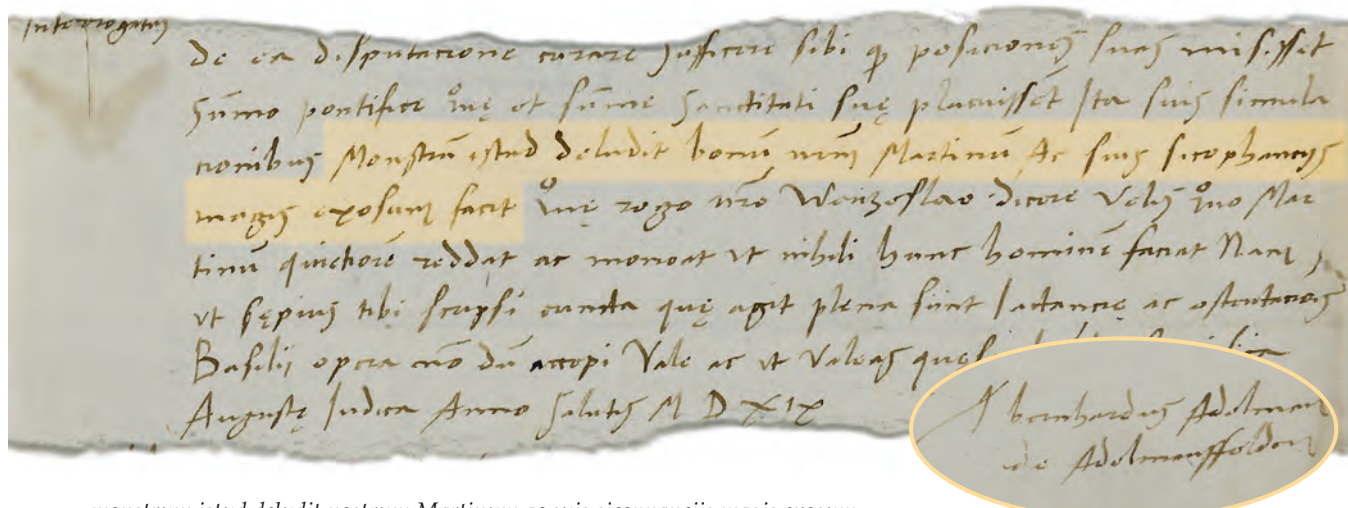 Interrogatus
de ea disputacione curare sufficere sibi ꝙ posiciones suas misisset
Sūmo pontifice Quę et sūme Sanctitati suę placuissēt Ita suis simula
cionibus Monstrū istud deludit bonū nrm̄ Martinū Ac suis sicophancijs
magis exosum facit Quę rogo nrō Wenzeslao dicere Velis Quo Mar
tinū quietiorē reddat ac moneat vt nihili hunc hominē faciat Nam
vt sępius tibi scripsi cuncta quę agit plena sunt Iactancię ac ostentacionis
Basilij opera nō dū accepi Vale ac vt Valeas
Augustę Iudica Anno Salutis M D XIX
bernhardus Adelman
de Adelmansfelden
monstrum istud deludit nostrum Martinum ac suis